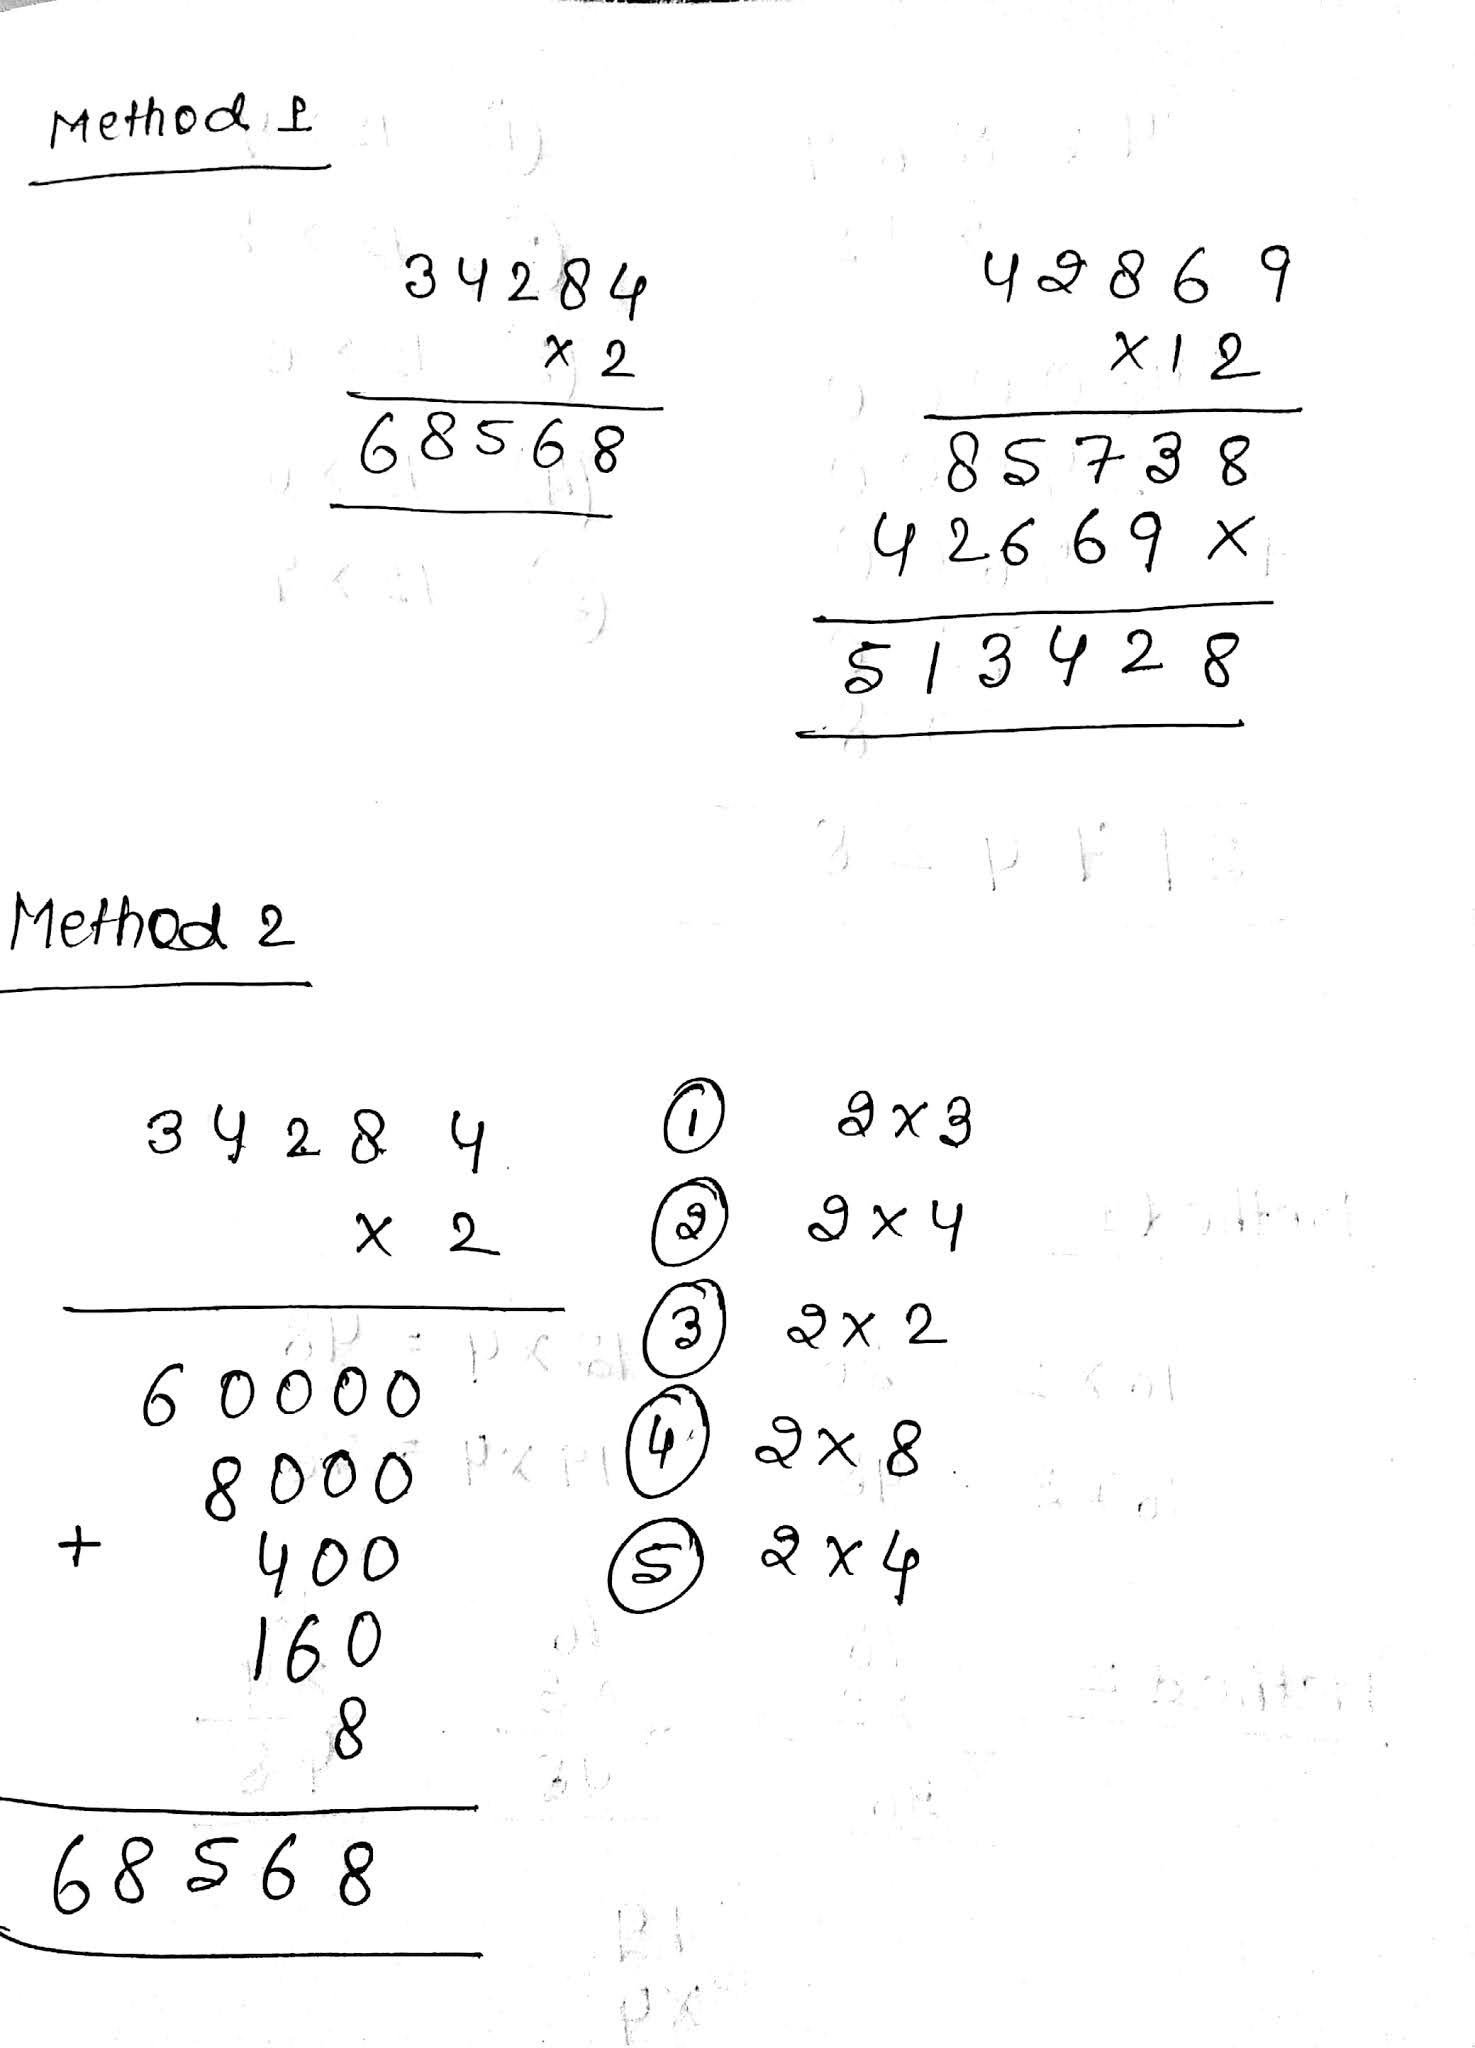 Method 1
34284
× 2
68568
42869
×12
85738
42669 ×
513428
Method 2
34284
× 2
60000
8000
+ 400
160
8
68568
① 2×3
② 2×4
③ 2×2
④ 2×8
⑤ 2×4